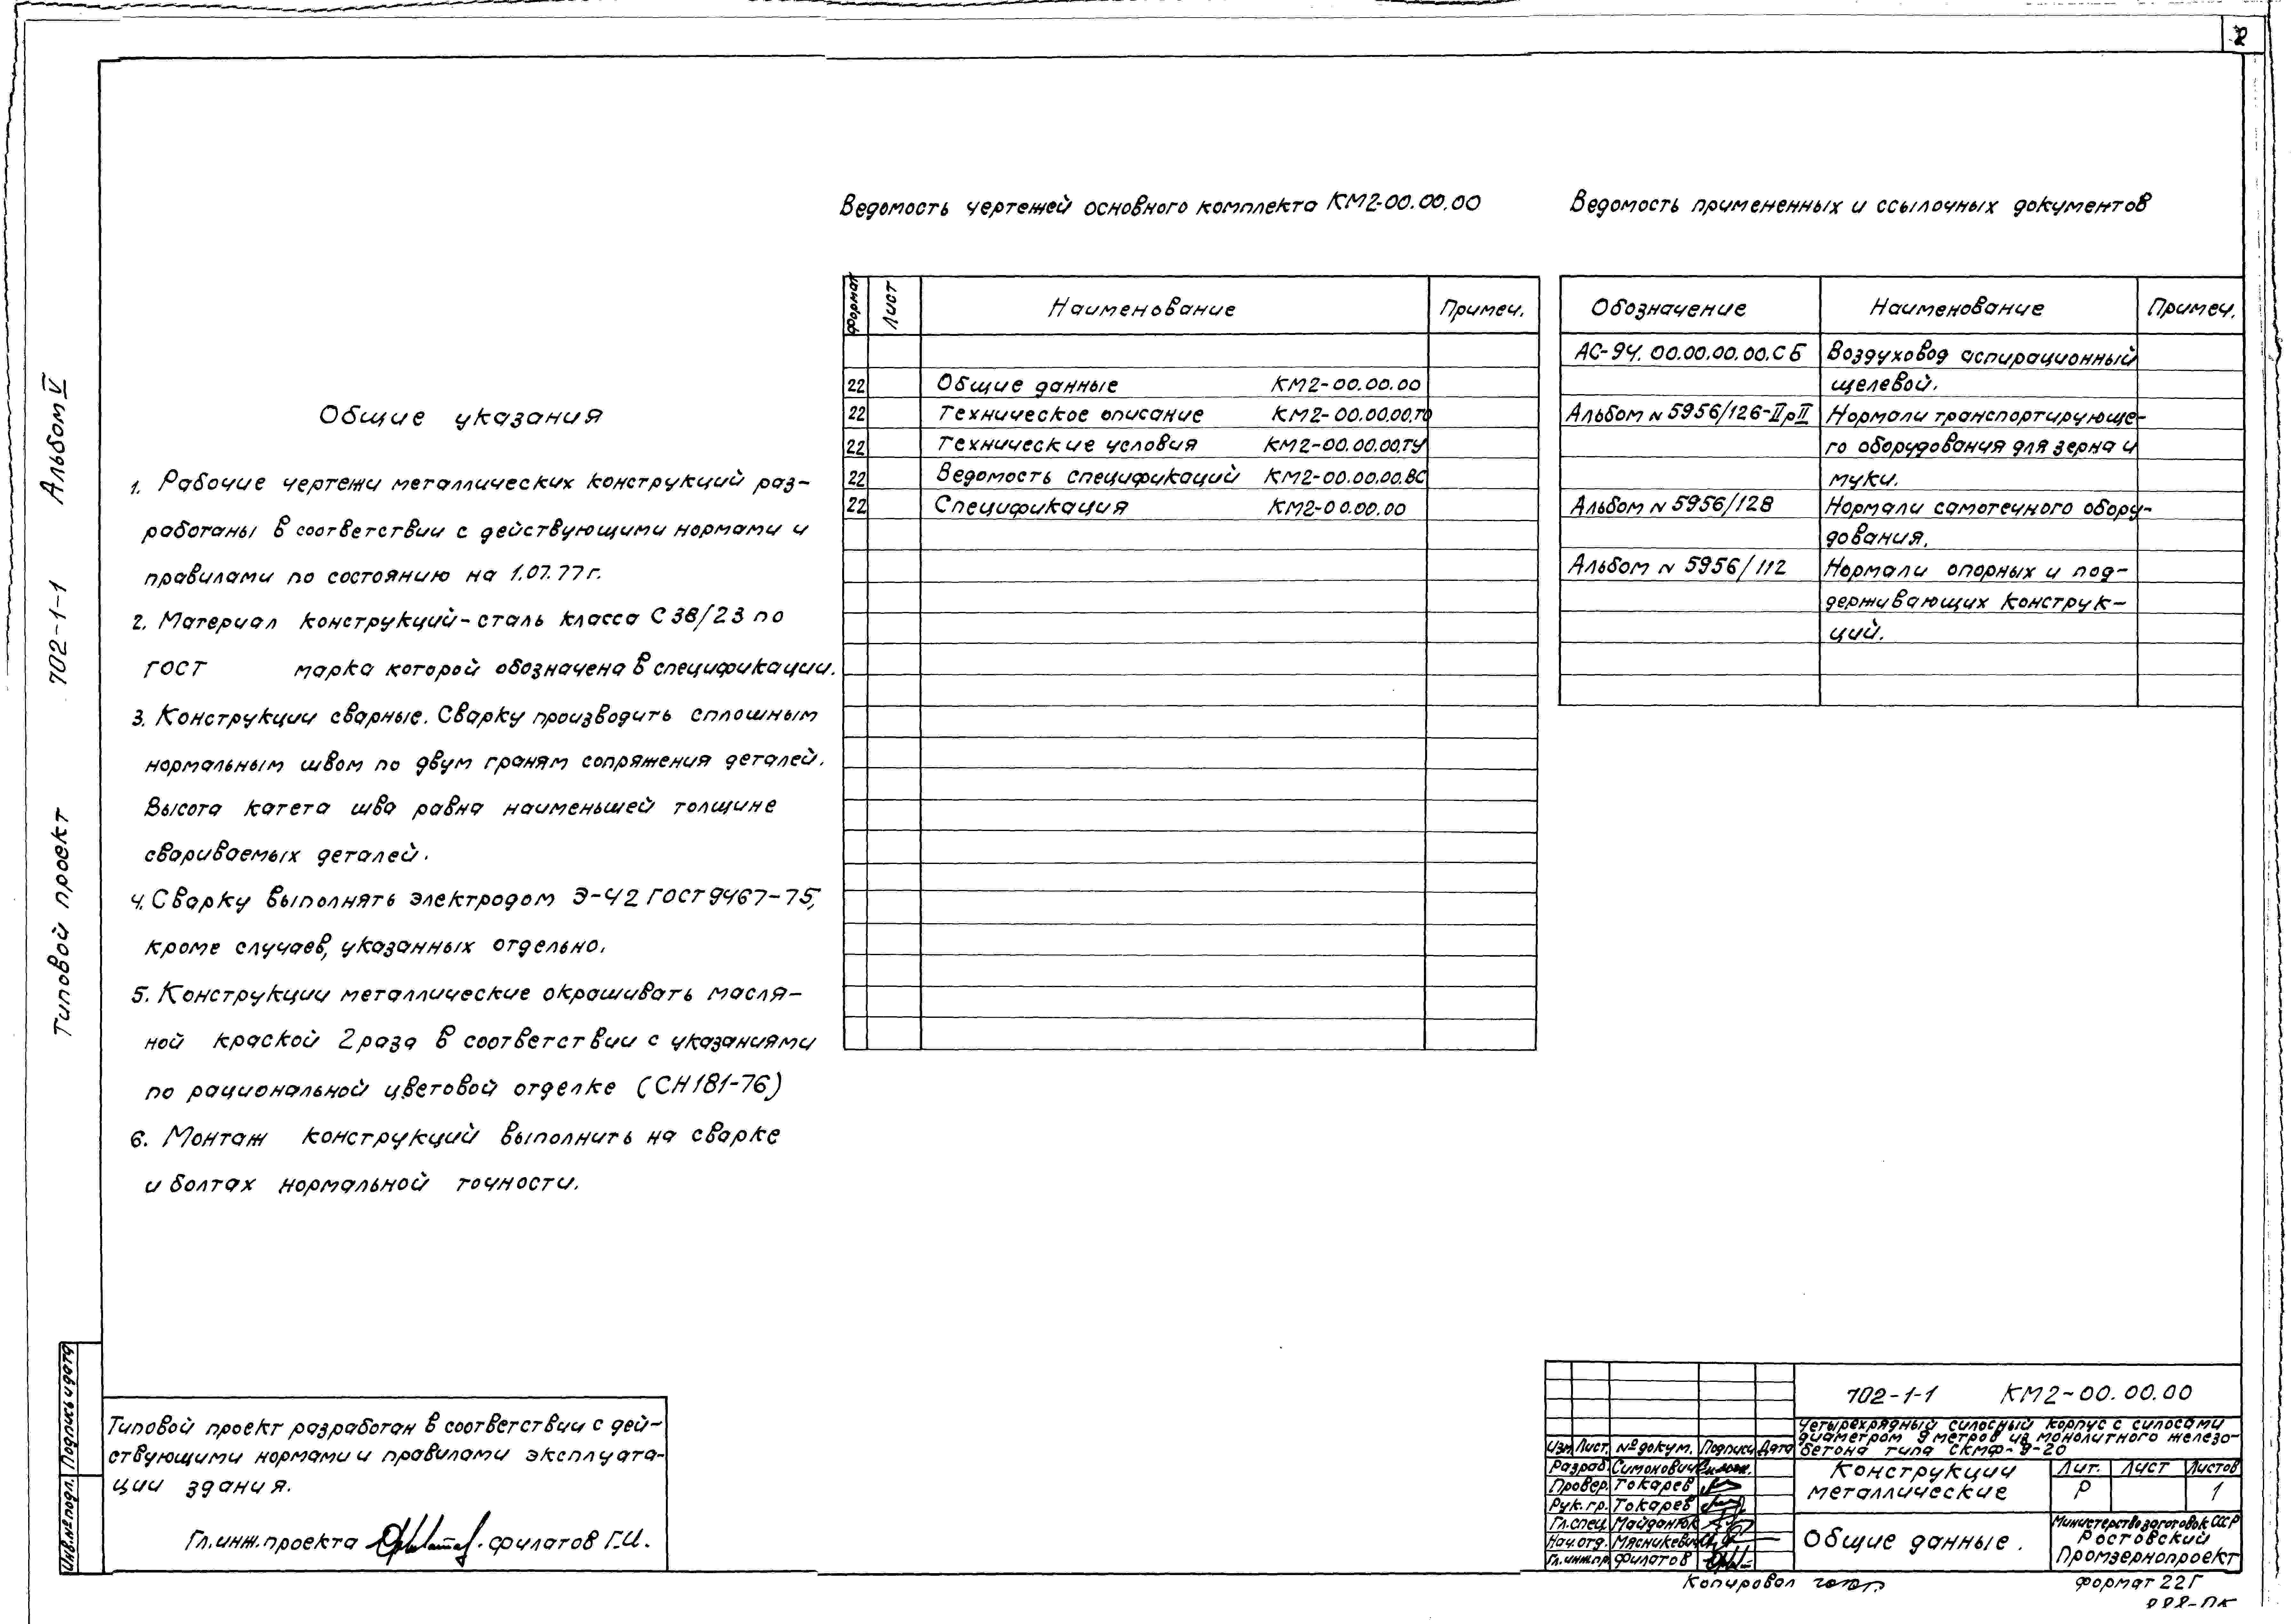 2
Альбом V
702-1-1
Типовой проект
Общие указания
1. Рабочие чертежи металлических конструкций раз-
работаны в соответствии с действующими нормами и
правилами по состоянию на 1.07.77г.
2. Материал конструкций-сталь класса С38/23 по
ГОСТ марка которой обозначена в спецификации.
3. Конструкции сварные. Сварку производить сплошным
нормальным швом по двум граням сопряжения деталей.
Высота катета шва равна наименьшей толщине
свариваемых деталей.
4. Сварку выполнять электродом Э-42 ГОСТ 9467-75,
кроме случаев, указанных отдельно.
5. Конструкции металлические окрашивать масля-
ной краской 2 раза в соответствии с указаниями
по рациональной цветовой отделке (СН 181-76)
6. Монтаж конструкций выполнить на сварке
и болтах нормальной точности.
Ведомость чертежей основного комплекта КМ2-00.00.00
Формат Лист Наименование Примеч.
22 Общие данные КМ2-00.00.00
22 Техническое описание КМ2-00.00.00.ТО
22 Технические условия КМ2-00.00.00.ТУ
22 Ведомость спецификаций КМ2-00.00.00.ВС
22 Спецификация КМ2-00.00.00
Ведомость примененных и ссылочных документов
Обозначение Наименование Примеч.
АС-94.00.00.00.00.СБ Воздуховод аспирационный
щелевой.
Альбом N 5956/126-IIрII Нормали транспортирующе-
го оборудования для зерна и
муки.
Альбом N 5956/128 Нормали самотечного обору-
дования.
Альбом N 5956/112 Нормали опорных и под-
держивающих конструк-
ций.
Типовой проект разработан в соответствии с дей-
ствующими нормами и правилами эксплуата-
ции здания.
Гл. инж. проекта Филатов Г.И.
Инв.№подл. Подпись и дата
702-1-1 КМ2-00.00.00
Четырехрядный силосный корпус с силосами
диаметром 9 метров из монолитного железо-
бетона типа СКМФ-9-20
Изм. Лист. №докум. Подпись Дата
Разраб. Симонович
Провер. Токарев
Рук. гр. Токарев
Гл. спец. Майданюк
Нач. отд. Мясникевич
Гл. инж. пр. Филатов
Конструкции
металлические
Лит. Лист Листов
Р 1
Общие данные.
Министерство заготовок СССР
Ростовский
Промзернопроект
Копировал
Формат 22Г